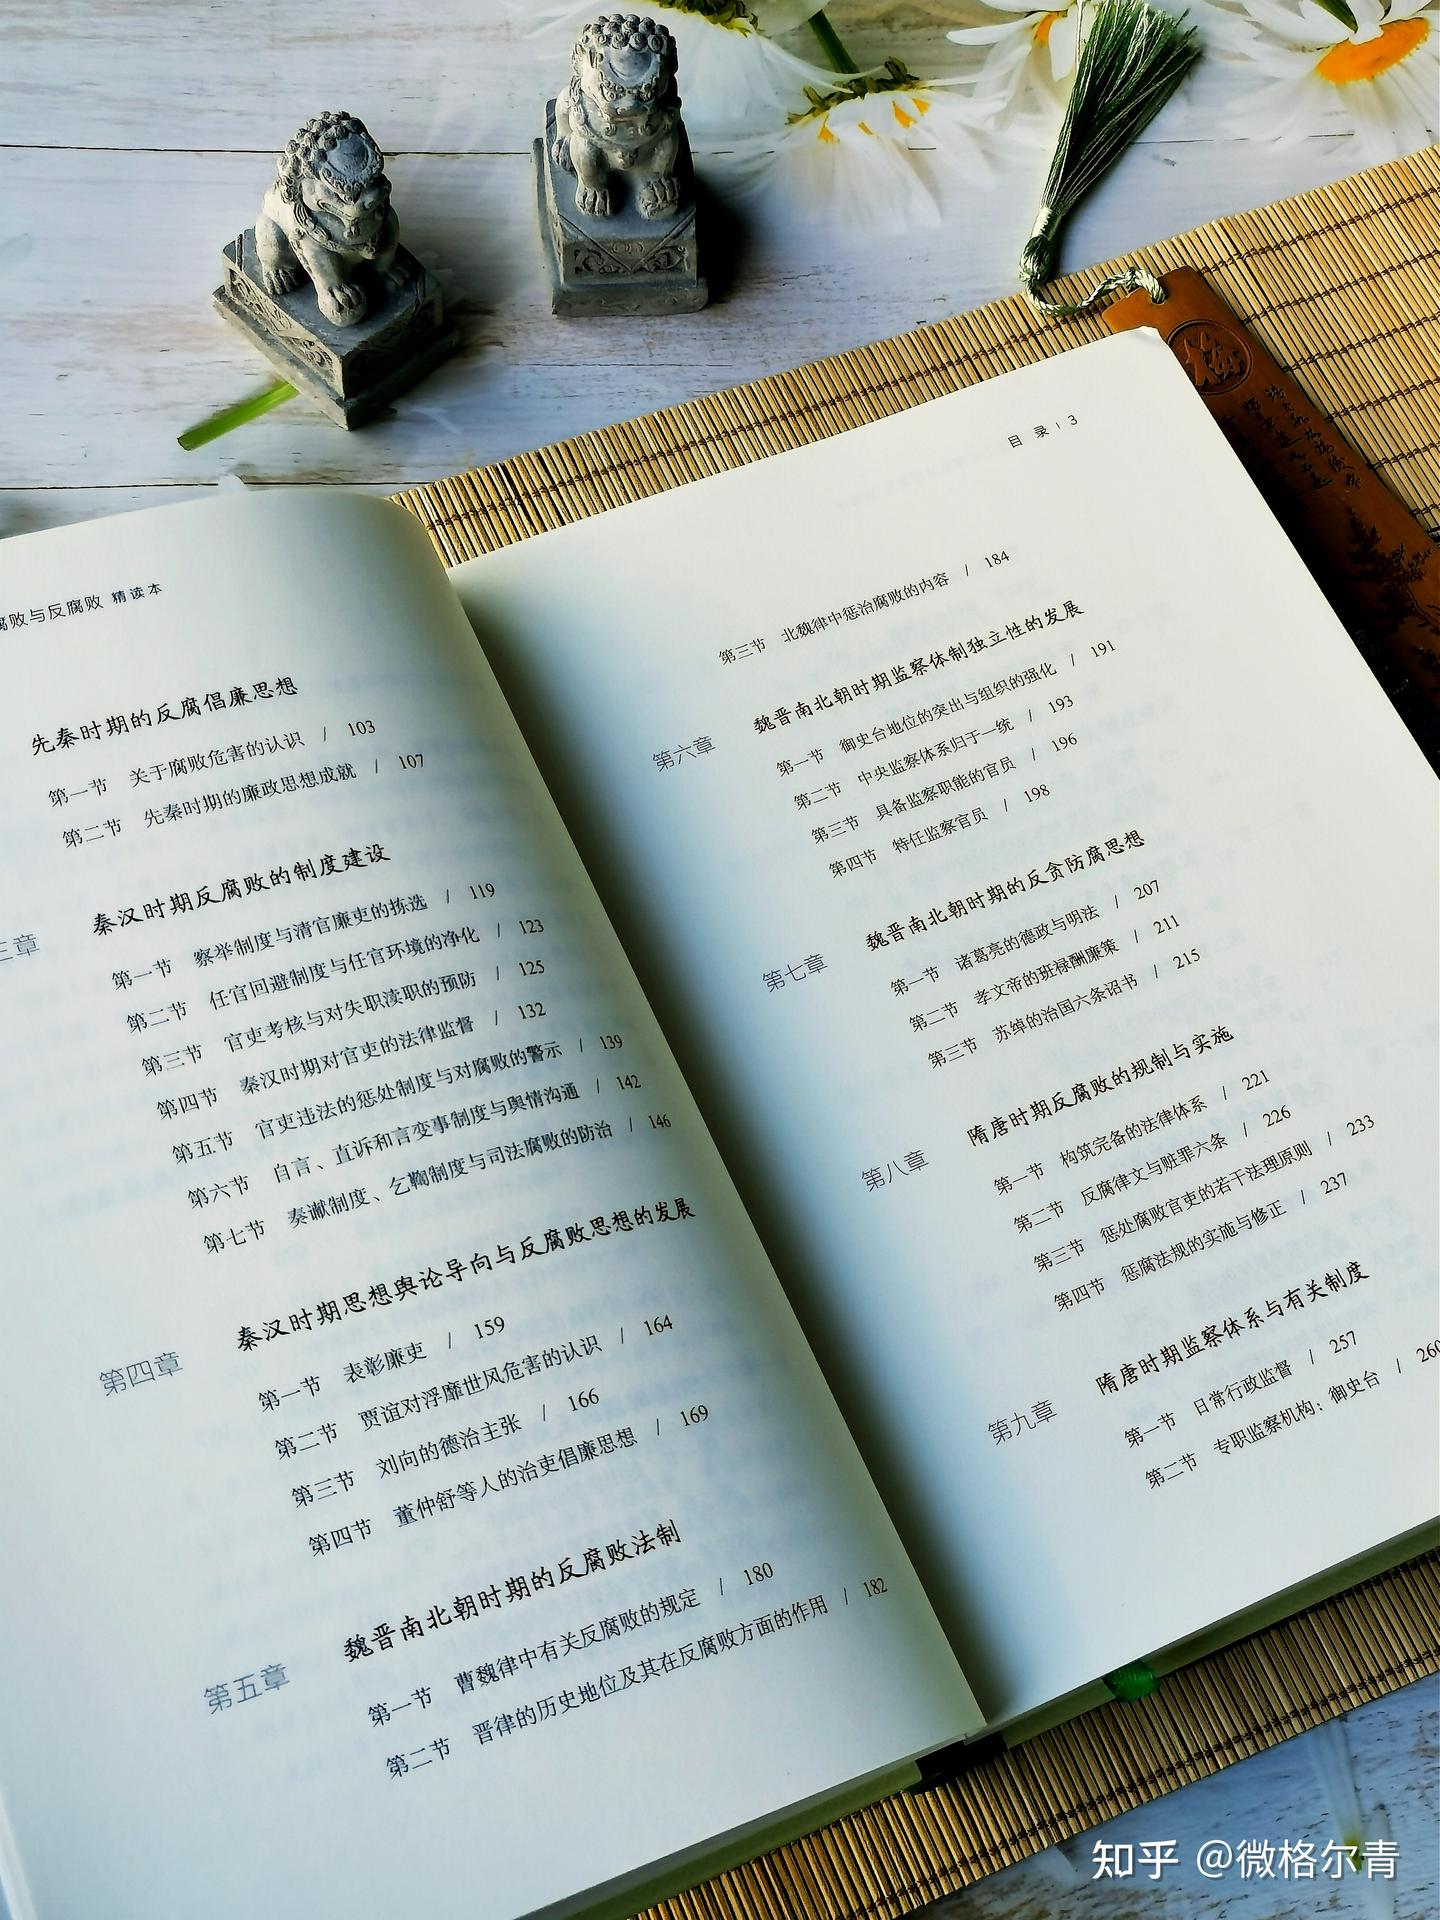 腐败与反腐败 精读本
先秦时期的反腐倡廉思想
第一节 关于腐败危害的认识 / 103
第二节 先秦时期的廉政思想成就 / 107
三章 秦汉时期反腐败的制度建设
第一节 察举制度与清官廉吏的拣选 / 119
第二节 任官回避制度与任官环境的净化 / 123
第三节 官吏考核与对失职渎职的预防 / 125
第四节 秦汉时期对官吏的法律监督 / 132
第五节 官吏违法的惩处制度与对腐败的警示 / 139
第六节 自言、直诉和言变事制度与舆情沟通 / 142
第七节 奏谳制度、乞鞫制度与司法腐败的防治 / 146
第四章 秦汉时期思想舆论导向与反腐败思想的发展
第一节 表彰廉吏 / 159
第二节 贾谊对浮靡世风危害的认识 / 164
第三节 刘向的德治主张 / 166
第四节 董仲舒等人的治吏倡廉思想 / 169
第五章 魏晋南北朝时期的反腐败法制
第一节 曹魏律中有关反腐败的规定 / 180
第二节 晋律的历史地位及其在反腐败方面的作用 / 182
目 录 | 3
第三节 北魏律中惩治腐败的内容 / 184
第六章 魏晋南北朝时期监察体制独立性的发展
第一节 御史台地位的突出与组织的强化 / 191
第二节 中央监察体系归于一统 / 193
第三节 具备监察职能的官员 / 196
第四节 特任监察官员 / 198
第七章 魏晋南北朝时期的反贪防腐思想
第一节 诸葛亮的德政与明法 / 207
第二节 孝文帝的班禄酬廉策 / 211
第三节 苏绰的治国六条诏书 / 215
第八章 隋唐时期反腐败的规制与实施
第一节 构筑完备的法律体系 / 221
第二节 反腐律文与赃罪六条 / 226
第三节 惩处腐败官吏的若干法理原则 / 233
第四节 惩腐法规的实施与修正 / 237
第九章 隋唐时期监察体系与有关制度
第一节 日常行政监督 / 257
第二节 专职监察机构：御史台 / 260
知乎 @微格尔青